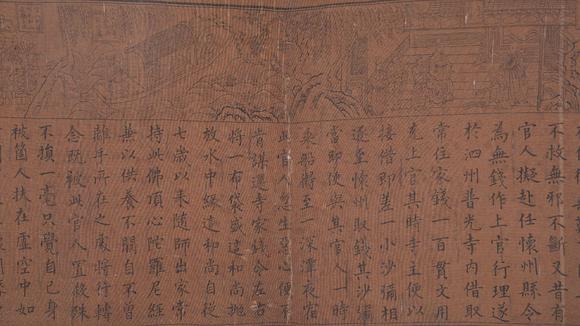 不救無邪不斷又昔有
官人擬赴任懷州縣令
為無錢作上官行理遂
於泗州普光寺內借取
常住家錢一百貫文用
充上官其時寺主便以
接借即差一小沙彌相
逐至懷州取錢其沙彌
當即便與其官人一時
乘船將至一深潭夜宿
此官人忽生惡心便不
肯謀還寺家錢令左右
將一布袋盛這和尚拋
放水中緣這和尚自從
七歲以来隨師出家常
持此佛頂心陀羅尼經
無以供養不闕自不曾
離手所在之處將行轉
念既被此官人置後殊
不損一毫只覺自己身
被箇人扶在虛空中如